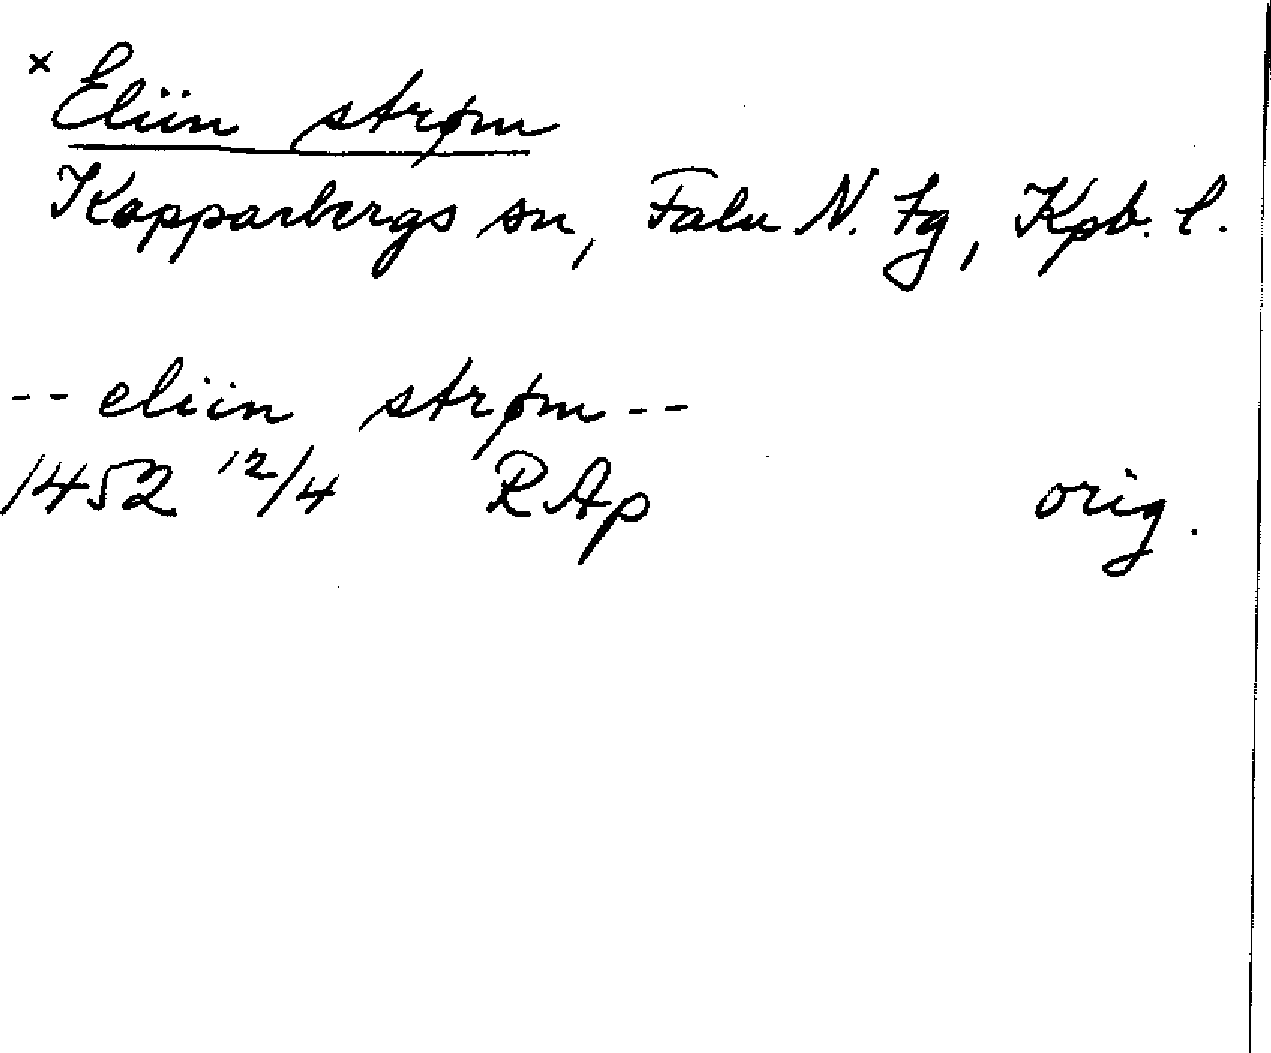 × Eliin strøm
Kopparbergs sn, Falu N. tg, Kpb. l.
-- eliin strøm --
1452 12/4 RAp orig.